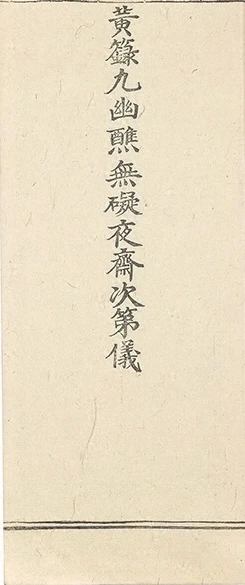 黃籙九幽醮無礙夜齋次第儀